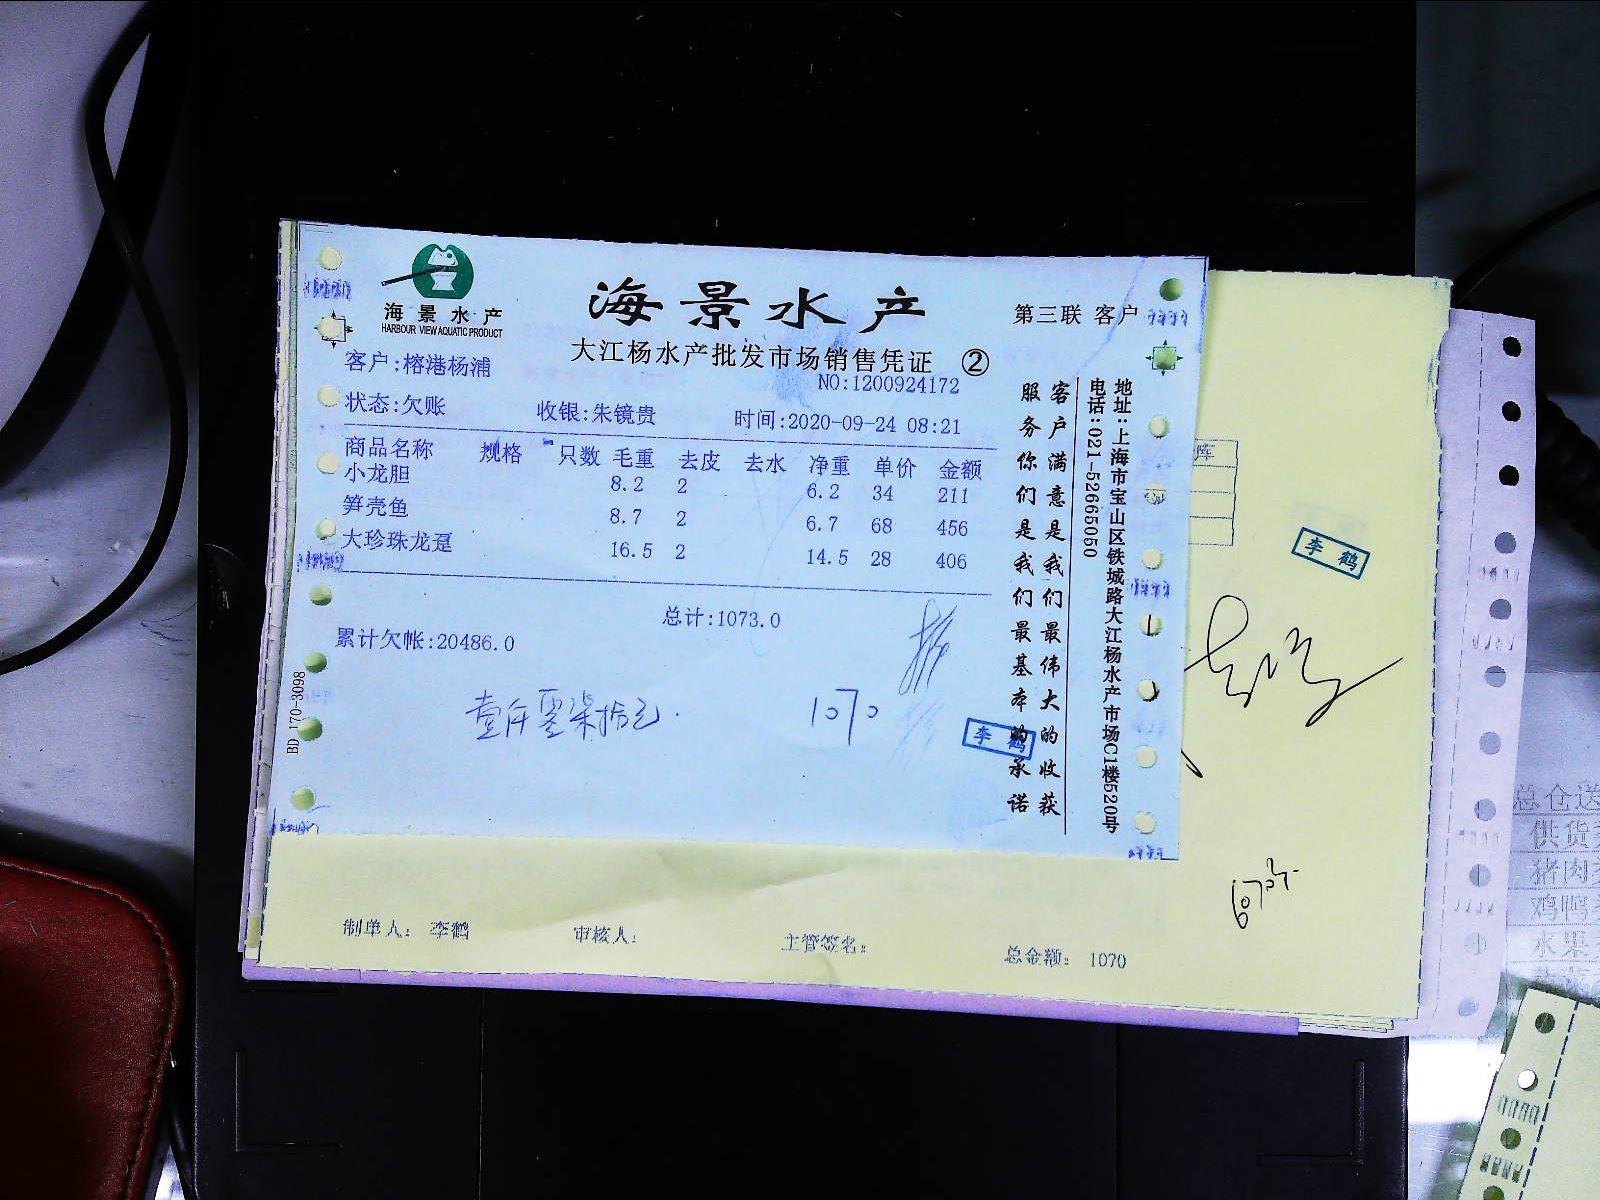 海景水产
HARBOUR VIEW AQUATIC PRODUCT
海景水产
第三联 客户
大江杨水产批发市场销售凭证 ②
客户:榕港杨浦
NO:1200924172
状态:欠账 收银:朱镜贵 时间:2020-09-24 08:21
商品名称 规格 只数 毛重 去皮 去水 净重 单价 金额
小龙胆 8.2 2 6.2 34 211
笋壳鱼 8.7 2 6.7 68 456
大珍珠龙趸 16.5 2 14.5 28 406
总计:1073.0
累计欠帐:20486.0
壹仟零柒拾元.
1070
李鹤
客户满意是我们最伟大的收获
服务你们是我们最基本的承诺
地址:上海市宝山区铁城路大江杨水产市场C1楼520号
电话:021-52665050
BD 170-3098
库
李鹤
制单人: 李鹤 审核人: 主管签名: 总金额: 1070
总仓送
供货
猪肉
鸡鸭
水果